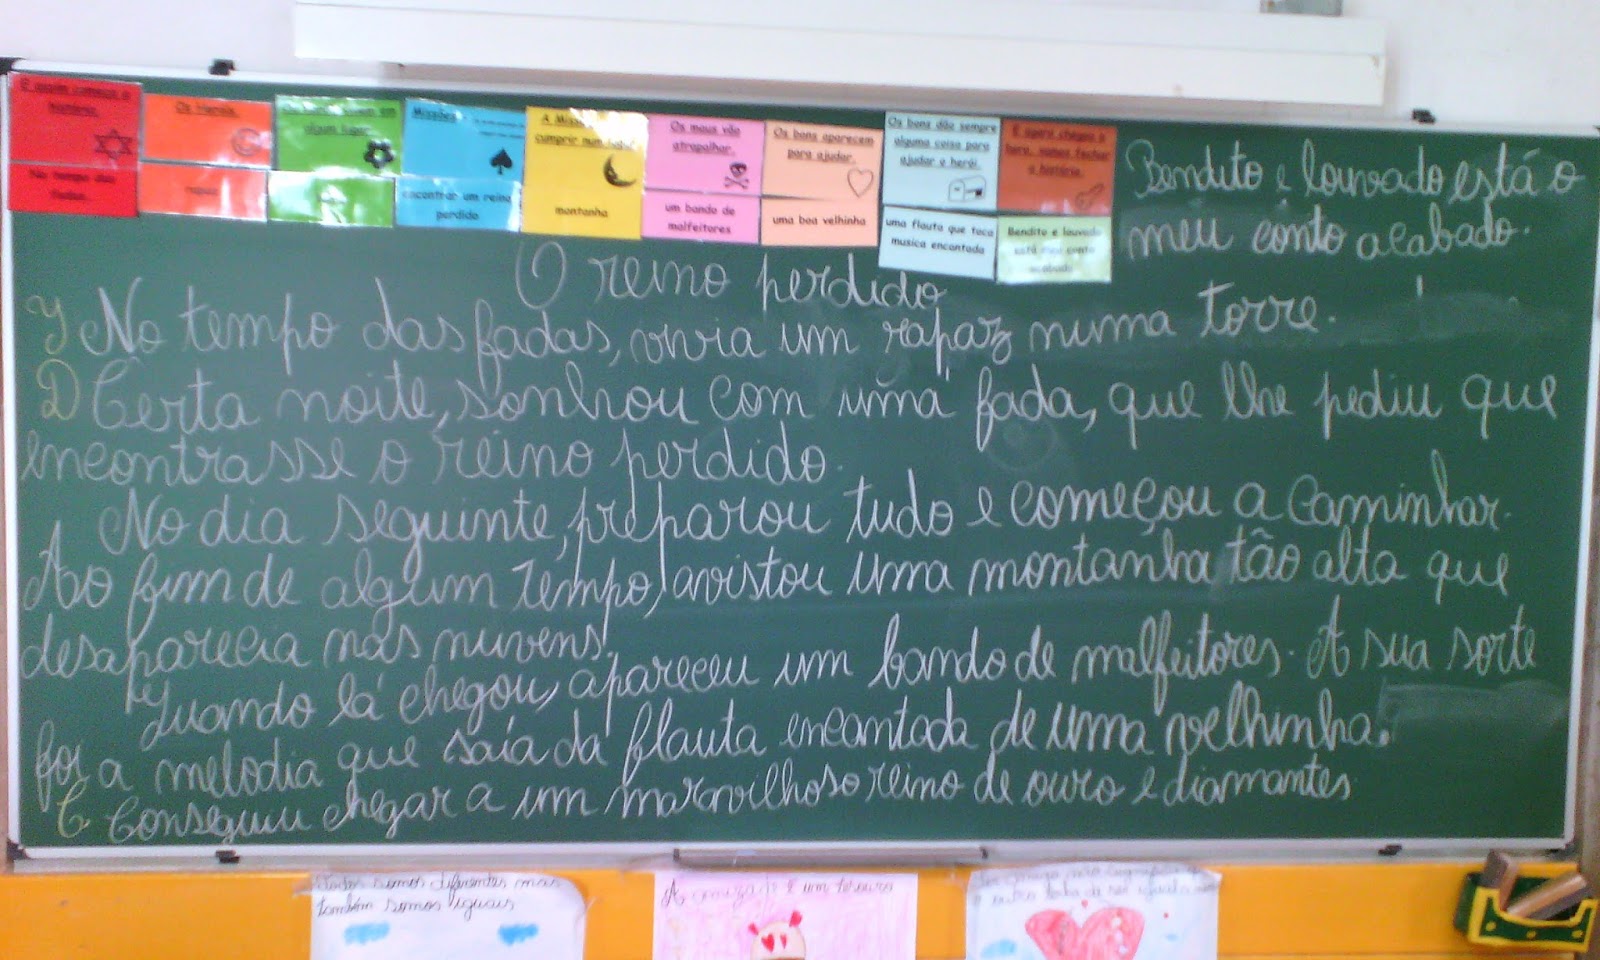 E assim começa a história.
No tempo das fadas.
Os Heróis.
rapaz
algum lugar.
Missões
encontrar um reino perdido
A Missão
cumprir num lugar
montanha
Os maus vão atrapalhar.
um bando de malfeitores
Os bons aparecem para ajudar.
uma boa velhinha
Os bons dão sempre alguma coisa para ajudar o herói.
uma flauta que toca musica encantada
E agora chegou a hora, vamos fechar a história.
Bendito e louvado está meu conto acabado
Bendito e louvado está o
meu conto acabado.
O reino perdido
No tempo das fadas, vivia um rapaz numa torre.
D Certa noite, sonhou com uma fada, que lhe pediu que
encontrasse o reino perdido.
No dia seguinte, preparou tudo e começou a caminhar.
Ao fim de algum tempo, avistou uma montanha tão alta que
desaparecia nas nuvens.
Quando lá chegou, apareceu um bando de malfeitores. A sua sorte
foi a melodia que saía da flauta encantada de uma velhinha.
C Conseguiu chegar a um maravilhoso reino de ouro e diamantes
Todos somos diferentes mas
também somos iguais
A amizade é um tesouro